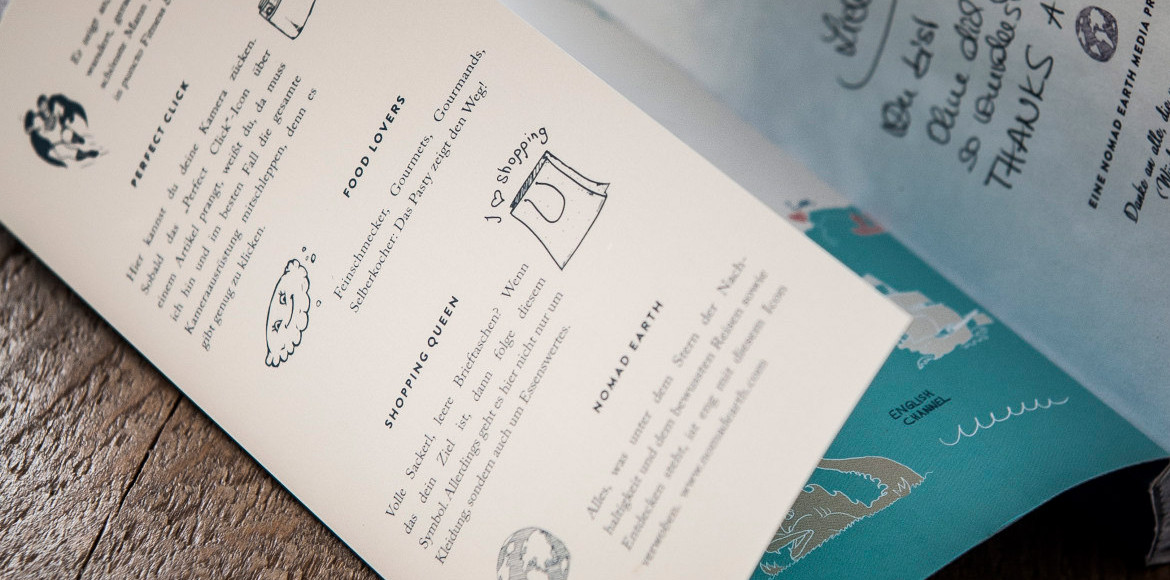 Es
wandert,
schönste Mann
in puncto Fitness
PERFECT CLICK
Hier kannst du deine Kamera zücken.
Sobald das „Perfect Click"-Icon über
einem Artikel prangt, weißt du, da muss
ich hin und im besten Fall die gesamte
Kameraausrüstung mitschleppen, denn es
gibt genug zu klicken.
FOOD LOVERS
Feinschmecker, Gourmets, Gourmands,
Selberkocher: Das Pasty zeigt den Weg!
I ♡ Shopping
SHOPPING QUEEN
Volle Sackerl, leere Brieftaschen? Wenn
das dein Ziel ist, dann folge diesem
Symbol. Allerdings geht es hier nicht nur um
Kleidung, sondern auch um Essenswertes.
NOMAD EARTH
Alles, was unter dem Stern der Nach-
haltigkeit und dem bewussten Reisen sowie
Entdecken steht, ist eng mit diesem Icon
verwoben. www.nomadearth.com
Du bist
Ohne dich
so
THANKS
EINE NOMAD EARTH MEDIA
Danke an alle, die
ENGLISH
CHANNEL